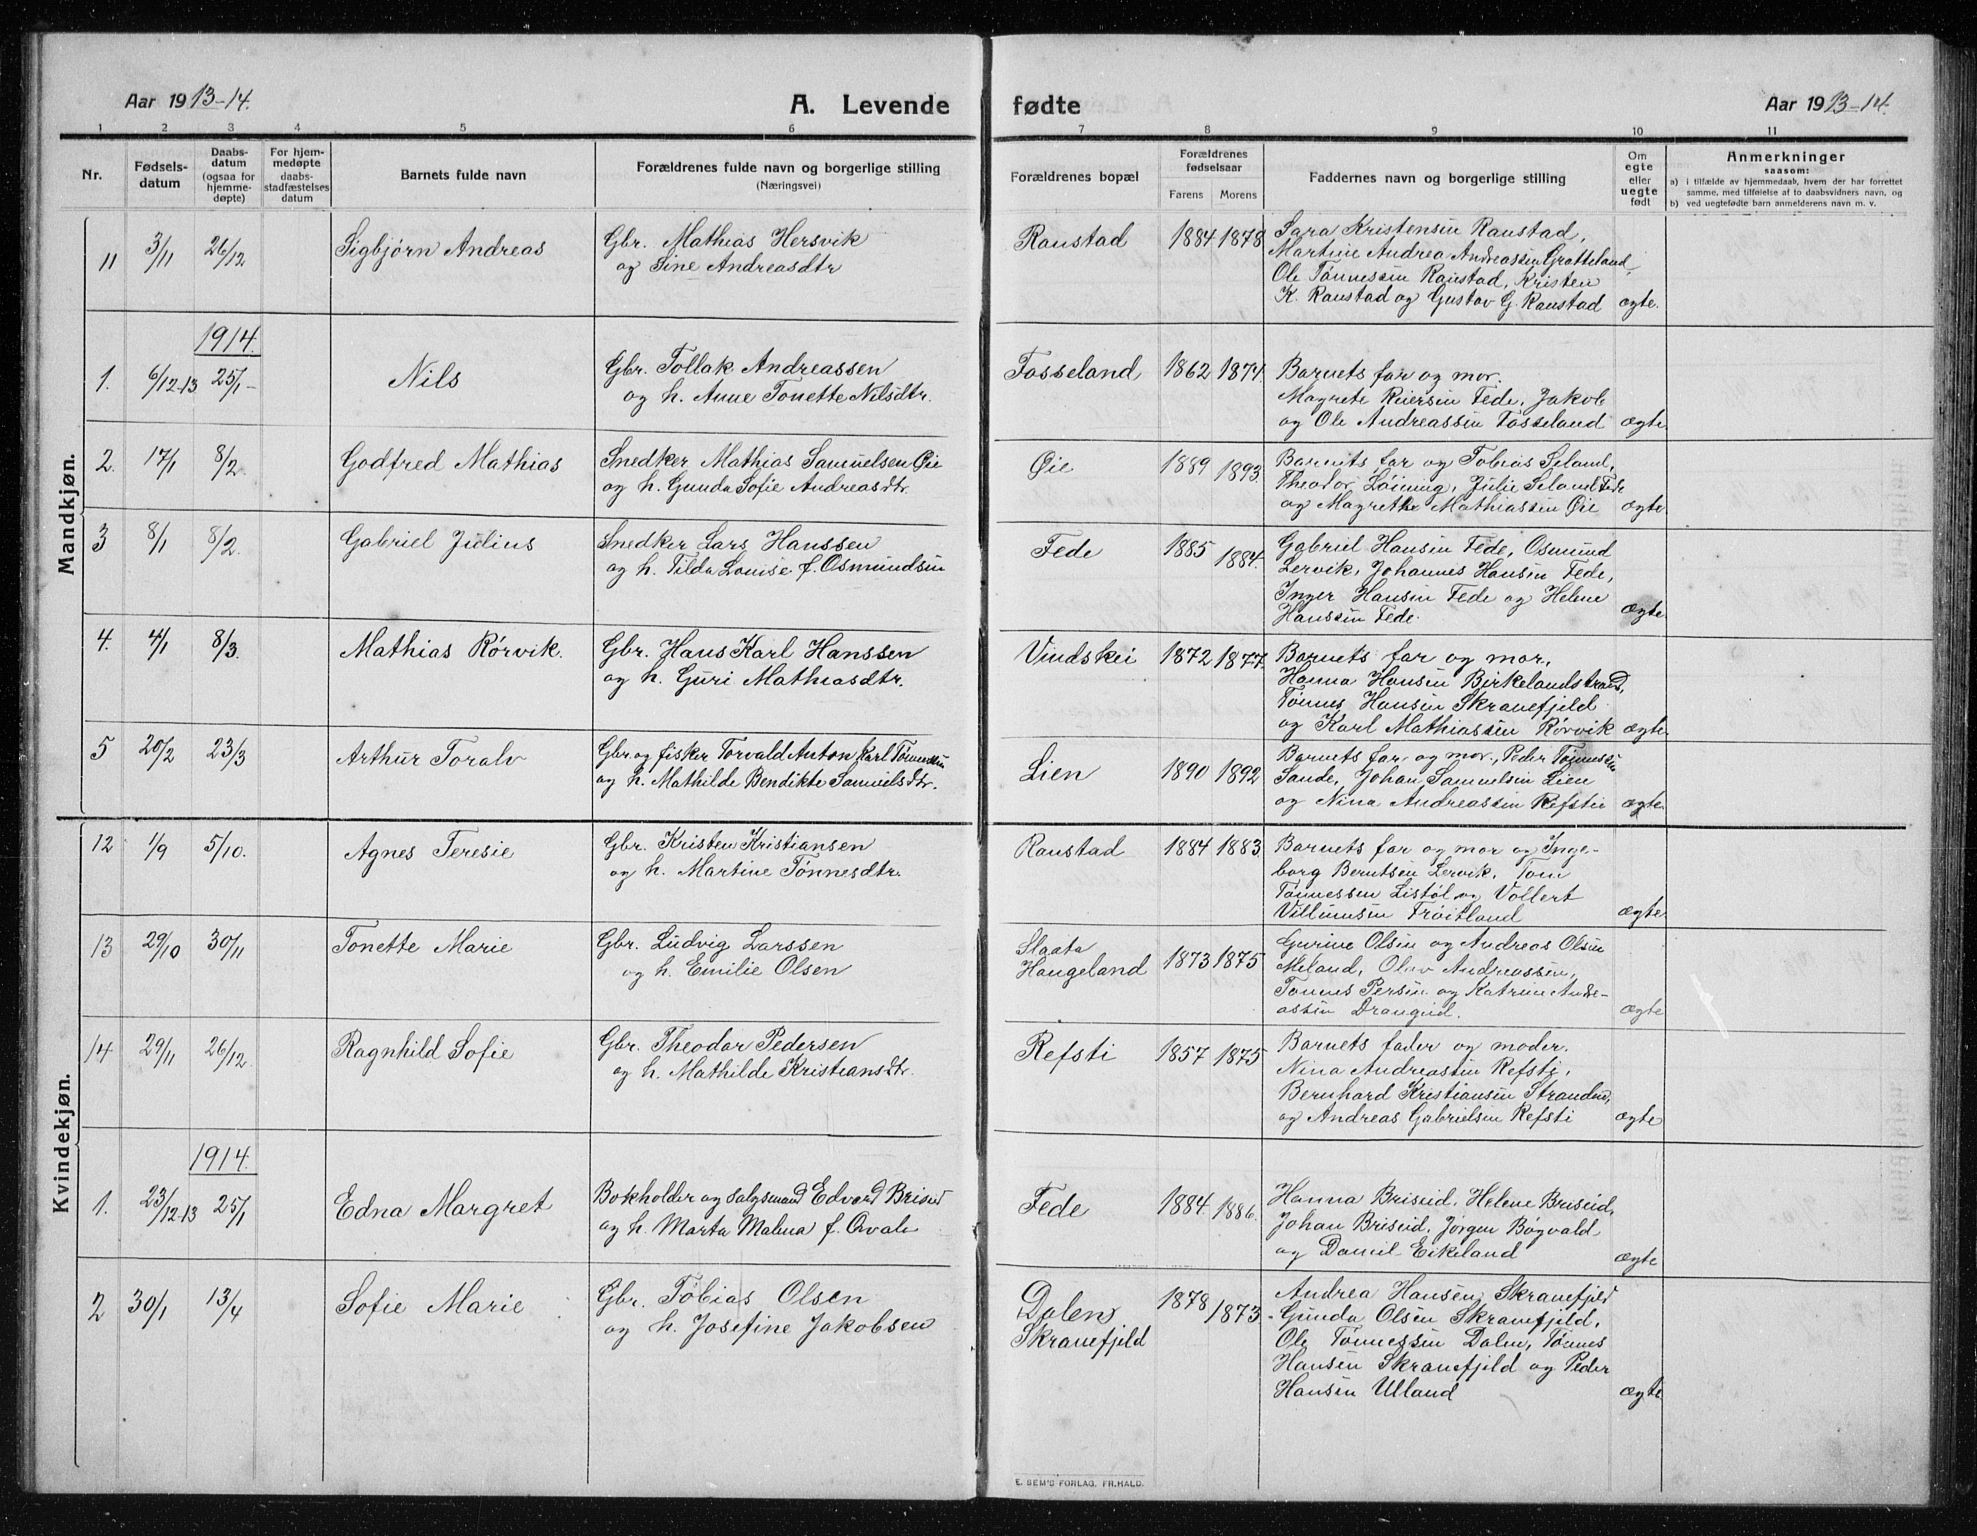 Aar 1913-14.
A. Levende fødte
Aar 1913-14.
1 2 3 4 5 6 7 8 9 10 11
Nr.
Fødsels-
datum
Daabs-
datum
(ogsaa for
hjemme-
døpte)
For hjem-
medøpte
daabs-
stadfæstelses
datum
Barnets fulde navn
Forældrenes fulde navn og borgerlige stilling
(Næringsvei)
Forældrenes bopæl
Forældrenes
fødselsaar
Farens Morens
Faddernes navn og borgerlige stilling
Om
egte
eller
uegte
født
Anmerkninger
saasom:
a) i tilfælde av hjemmedaab, hvem der har forrettet
samme, med tilføielse af to daabsvidners navn, og
b) ved uegtefødte barn anmelderens navn m. v.
Mandkjøn.
11 3/11 26/12 Sigbjørn Andreas
Gbr. Mathias Hersvik
og Sine Andreasdtr
Raustad 1884 1878
Sara Kristensen Raustad,
Martine Andrea Andreassen Grotteland,
Ole Tønnessen Raustad, Kristen
K. Raustad og Gustav G. Raustad ægte.
1914.
1. 6/12-13 25/1- Nils
Gbr. Tollak Andreassen
og h. Anne Tonette Nilsdtr.
Fosseland 1862 1871.
Barnets far og mor.
Magrete Reiersen Fede, Jakob
og Ole Andreassen Fosseland ægte
2. 17/1 8/2 Godfred Mathias
Snedker Mathias Samuelsen Øie
og h. Gunda Sofie Andreasdtr.
Øie 1889 1893.
Barnets far og Tobias Seland,
Theodor Løining, Julie Seland Fede
og Magrethe Mathiassen Øie ægte.
3 8/1 8/2. Gabriel Julius
Snedker Lars Hanssen
og h. Tilda Louise f. Osmundsen
Fede 1885 1884.
Gabriel Hansen Fede, Osmund
Lervik, Johannes Hansen Fede,
Inger Hansen Fede og Helene
Hanssen Fede. ægte
4. 4/1 8/3. Mathias Rørvik.
Gbr. Hans Karl Hanssen
og h. Guri Mathiasdtr.
Vindskei 1872 1877.
Barnets far og mor,
Hanna Hansen Birkelandstrand,
Tønnes Hansen Skranefjeld
og Karl Mathiassen Rørvik ægte.
5 20/2 23/3 Arthur Toralv
Gbr. og fisker Torvald Anton Karl Tønnessen
og h. Mathilde Bendikte Samuelsdtr.
Lien 1890 1892
Barnets far og mor, Peder Tønnessen
Sande, Johan Samuelsen Lien
og Nina Andreassen Refsti ægte.
Kvindekjøn.
12 1/9 5/10. Agnes Teresie
Gbr. Kristen Kristiansen
og h. Martine Tønnesdtr.
Raustad 1884 1883.
Barnets far og mor og Inge-
borg Berntsen Lervik, Tom
Tønnessen Listøl og Vollert
Villumsen Frøitland ægte
13 29/10 30/11 Tonette Marie
Gbr. Ludvig Larssen
og h. Emilie Olsen
Slaata
Haugeland 1873 1875
Gurine Olsen og Andreas Olsen
Meland, Olav Andreassen,
Tønnes Persen og Katrine Andre-
assen Drangeid. ægte
14 29/11 26/12. Ragnhild Sofie
Gbr. Theodor Pedersen
og h. Mathilde Kristiansdtr.
Refsti 1857 1875
Barnets fader og moder.
Nina Andreassen Refsti,
Bernhard Kristiansen Stranden,
og Andreas Gabrielsen Refsti ægte
1914.
1. 23/12-13 25/1 Edna Margret
Bokholder og salgsmand Edvard Briseid
og h. Marta Malena f. Ovale
Fede 1884. 1886.
Hanna Briseid, Helene Briseid,
Johan Briseid, Jørgen Bøgvald
og Daniel Eikeland ægte
2 30/1 13/4 Sofie Marie
Gbr. Tobias Olsen
og h. Josefine Jakobsen
Dalen
Skranefjeld 1878 1873
Andrea Hansen Skranefjeld
Gunda Olsen Skranefjeld,
Ole Tønnessen Dalen, Tønnes
Hansen Skranefjeld og Peder
Hansen Ulland ægte
E. SEM'S FORLAG, FR.HALD.